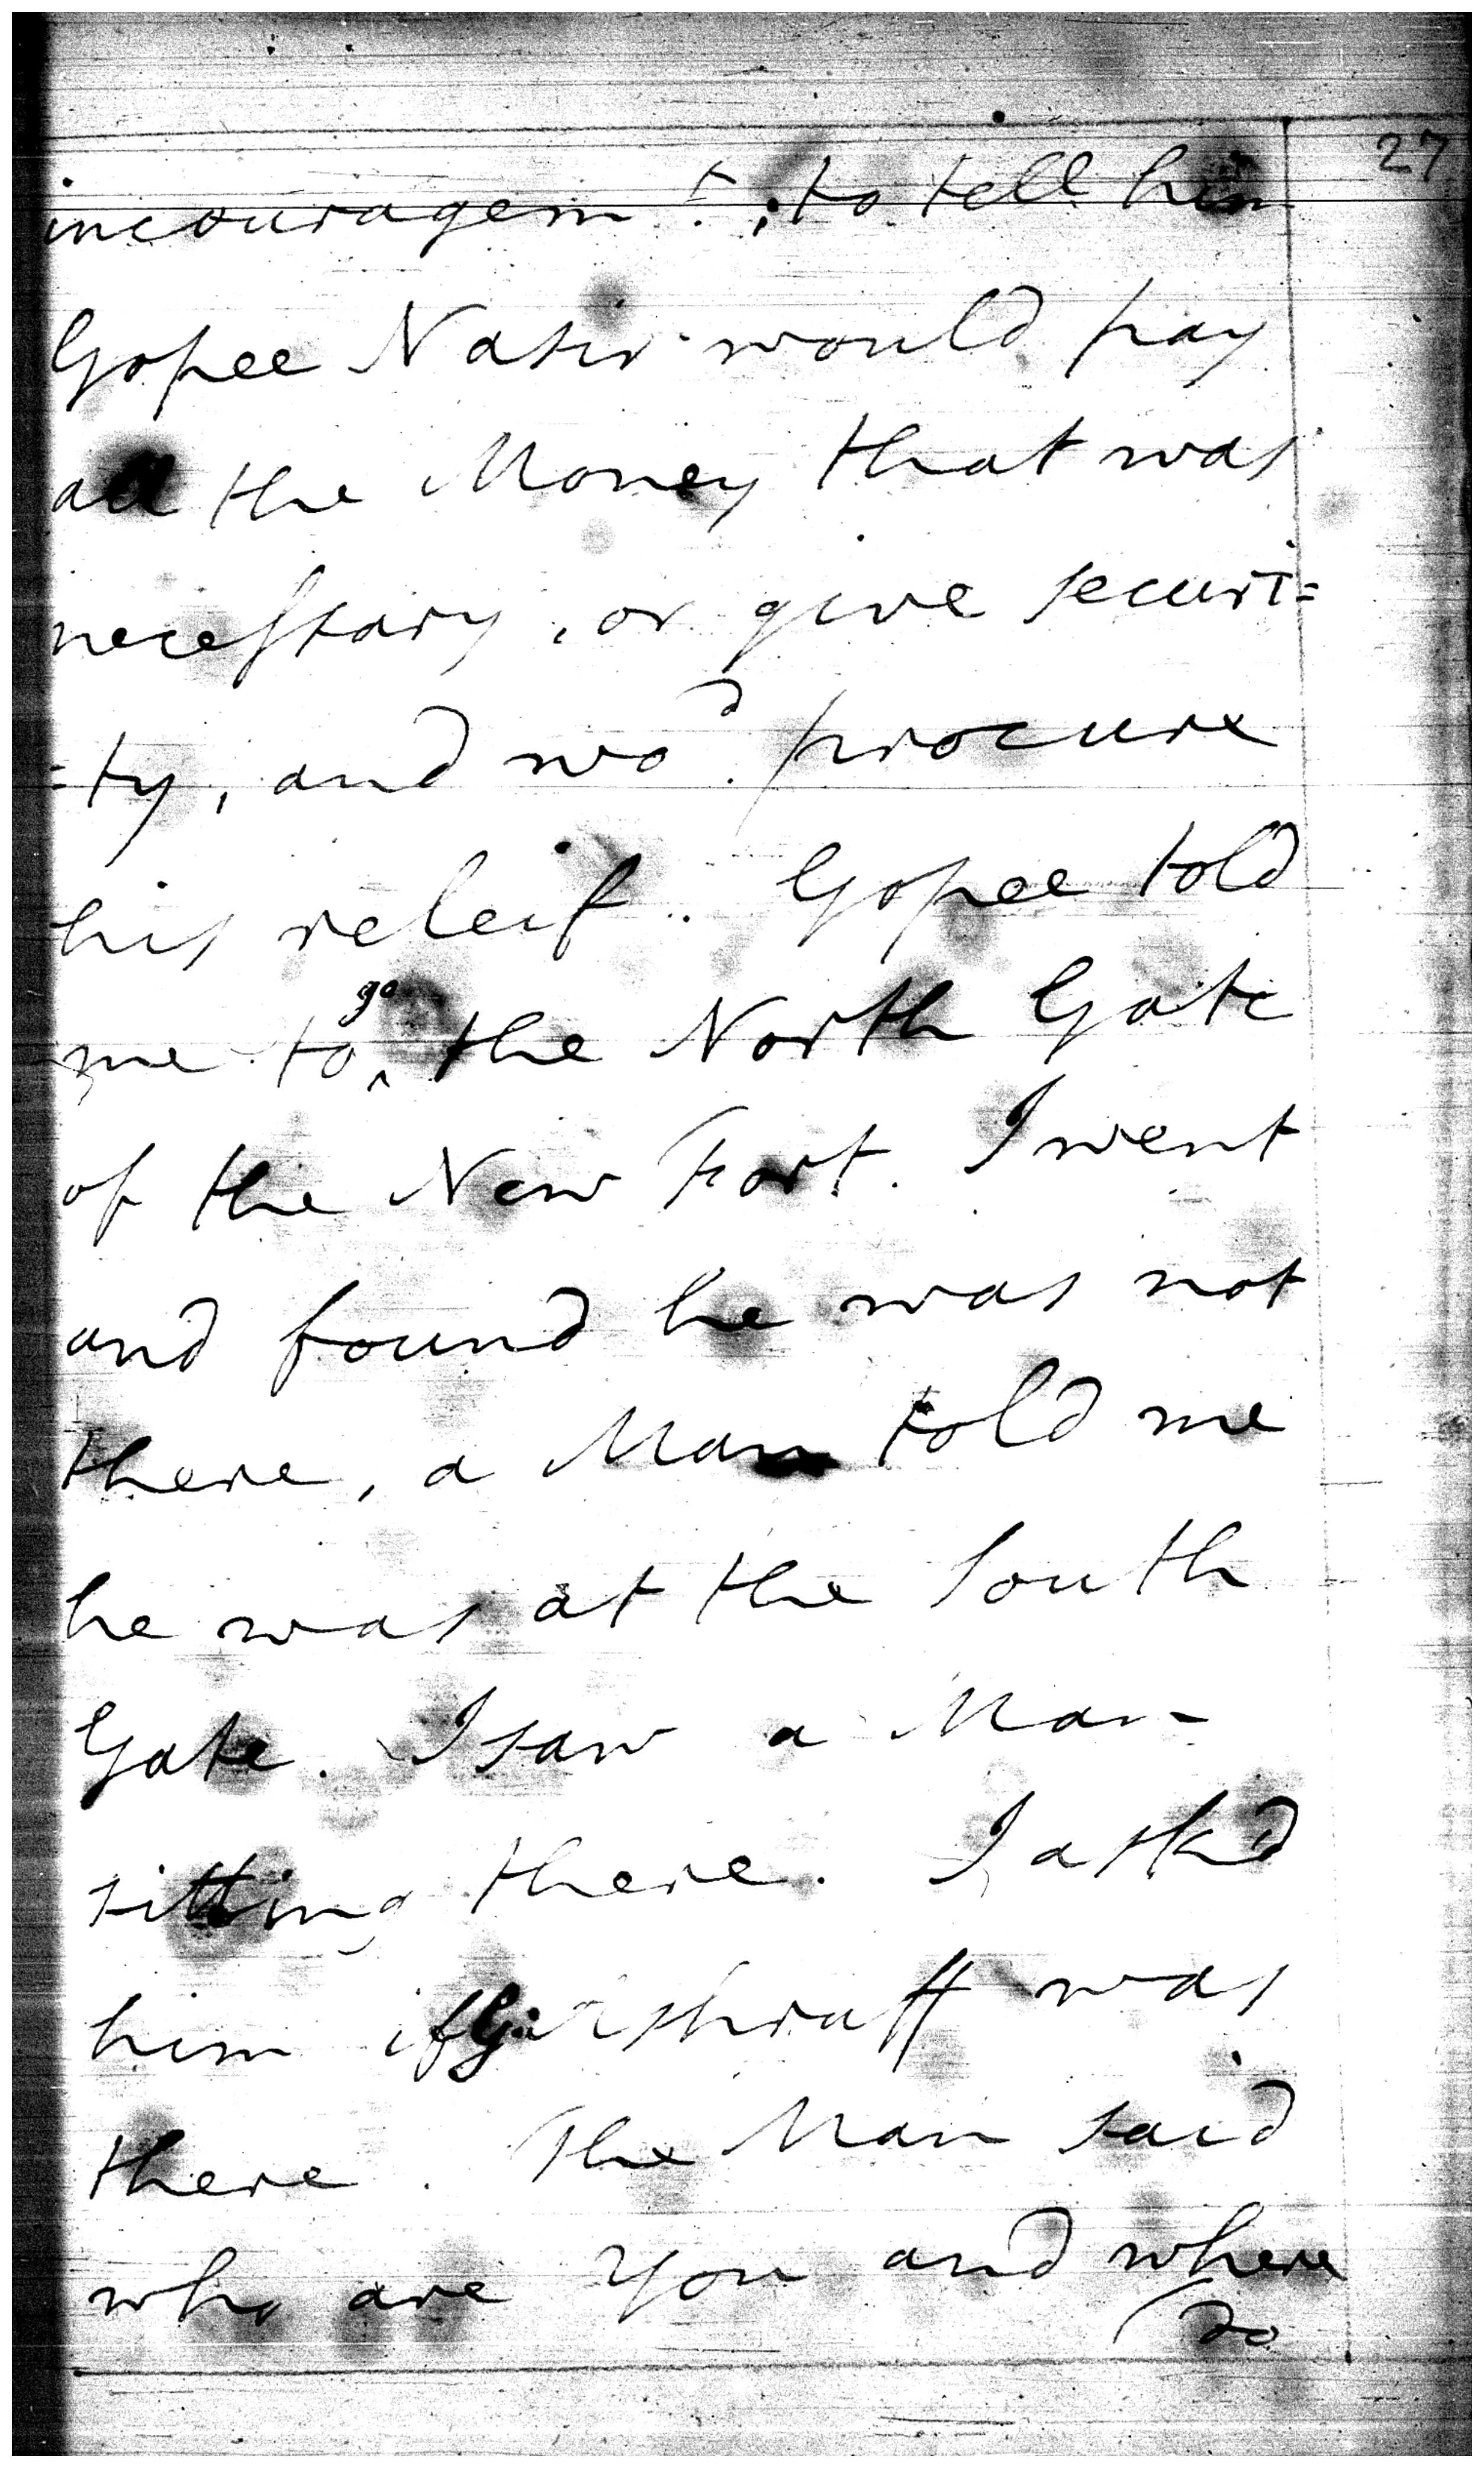 27
incouragem.t; to tell him
Gopee Nasir would pay
all the Money that was
necessary, or give securi=
=ty, and wo.d procure
his releif. Gopee told
me to go the North Gate
of the New Fort. I went
and found he was not
there, a Man told me
he was at the South
Gate. I saw a Man
sitting there. I ask'd
him if was
there. The Man said
who are You and where
(do